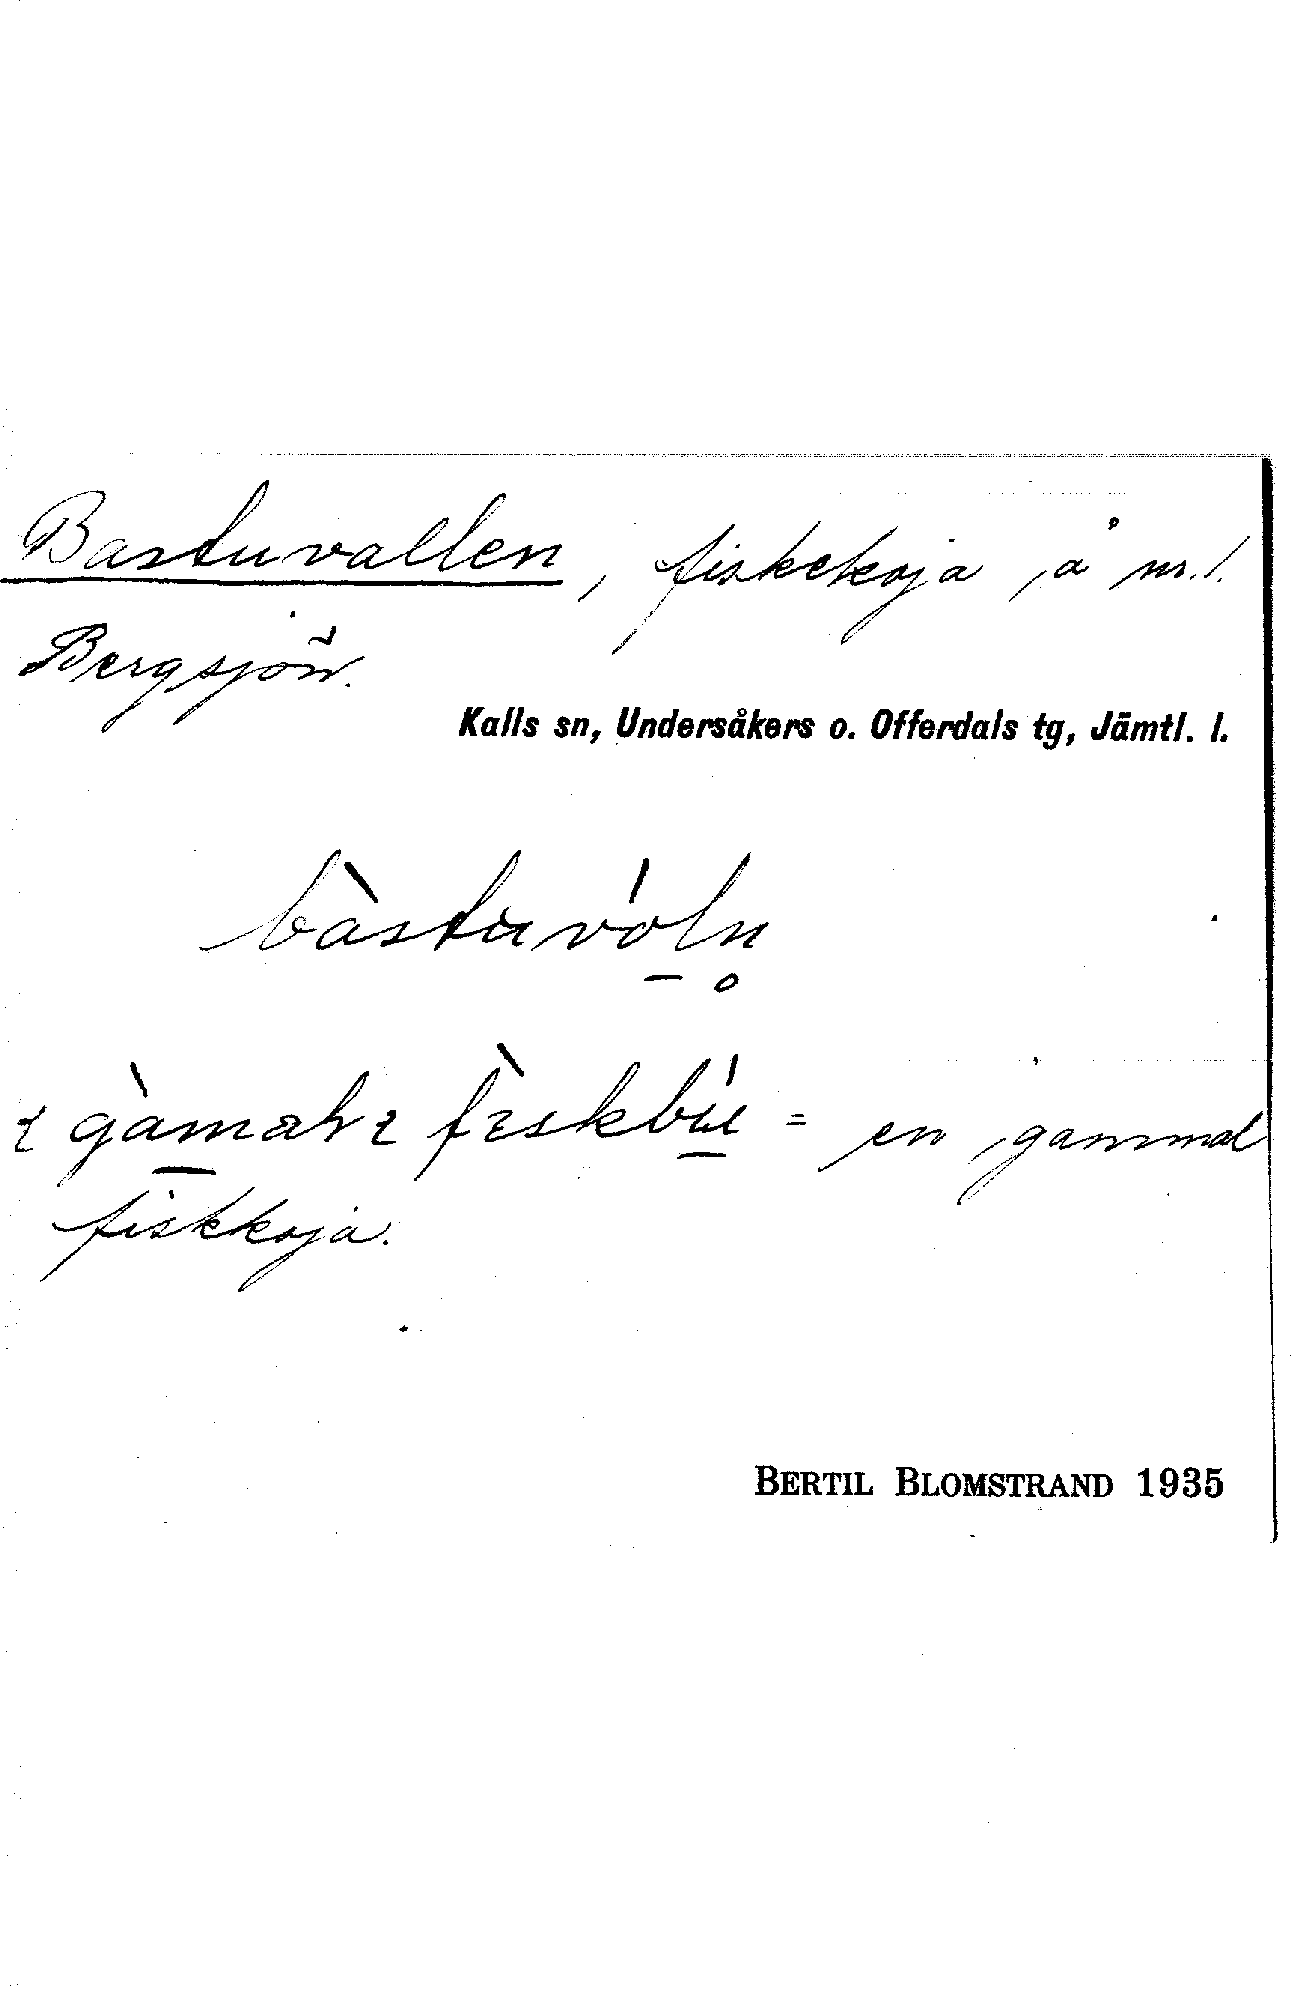 Bastuvallen, fiskekoja å nr. 1.
Bergsjön.
Kalls sn, Undersåkers o. Offerdals tg, Jämtl. l.
bàstuvól̲n̥
ɩ gàm̲alɩ fɩ̀skbú̲ = en gammal
fiskkoja.
BERTIL BLOMSTRAND 1935